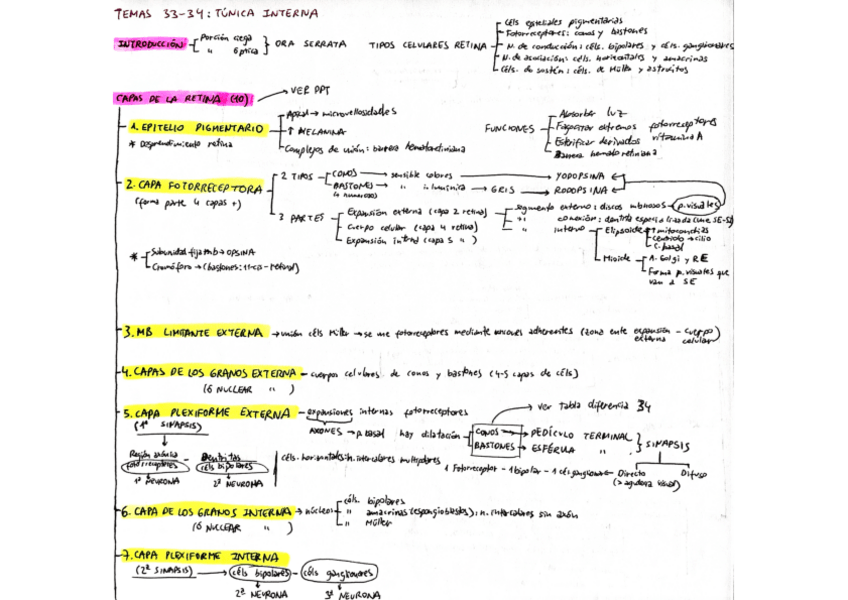 TEMAS 33-34: TÚNICA INTERNA
INTRODUCCIÓN Porción ciega
" óptica
ORA SERRATA
TIPOS CELULARES RETINA
Céls epiteliales pigmentarias
Fotorreceptores: conos y bastones
N. de conducción: céls. bipolares y céls. ganglionares
N. de asociación: céls. horizontales y amacrinas
Céls. de sostén: céls. de Müller y astrocitos
CAPAS DE LA RETINA (10) → VER PPT
1. EPITELIO PIGMENTARIO
* Desprendimiento retina
Apical → microvellosidades
↑ MELANINA
Complejos de unión: barrera hematorretiniana
FUNCIONES
Absorber luz
Fagocitar extremos fotorreceptores
Esterificar derivados vitamina A
Barrera hematorretiniana
2. CAPA FOTORRECEPTORA
(forma parte 4 capas +)
2 TIPOS
CONOS → sensible colores → YODOPSINA
BASTONES → " → GRIS → RODOPSINA
(+ numerosos)
3 PARTES
Expansión externa (capa 2 retina)
Cuerpo celular (capa 4 retina)
Expansión interna (capa 5 " )
segmento externo: discos mbnosos → p. visuales
" conexión:
" interno
Elipsoide
↑ mitocondrias
centriolo → cilio
c. basal
Mioide
A. Golgi y RE
Forma p. visuales que
van a SE
* Subunidad fija mb → OPSINA
Cromóforo → (bastones: 11-cis-retinal)
3. MB LIMITANTE EXTERNA → unión céls Müller → se une fotorreceptores mediante uniones adherentes (zona entre expansión - cuerpo)
externa celular
4. CAPAS DE LOS GRANOS EXTERNA - cuerpos celulares de conos y bastones (4-5 capas de céls)
(ó NUCLEAR " )
5. CAPA PLEXIFORME EXTERNA - expansiones internas fotorreceptores
(1ª SINAPSIS)
AXONES → p basal hay dilatación
→ ver tabla diferencia 34
CONOS → PEDÍCULO TERMINAL
BASTONES → ESFÉRULA "
SINAPSIS
Región axónica fotorreceptores
1ª NEURONA
Dendritas céls bipolares
2ª NEURONA
céls. horizontales: n. intercalares multipolares
Fotorreceptor - 1 bipolar - 1 cél ganglionar
Directo
(> agudeza visual)
Difuso
6. CAPA DE LOS GRANOS INTERNA → núcleos
(ó NUCLEAR " )
céls. bipolares
" amacrinas (espongioblastos): n. intercalares sin axón
" Müller
7. CAPA PLEXIFORME INTERNA
(2ª SINAPSIS) → céls bipolares - céls ganglionares
2ª NEURONA
3ª NEURONA